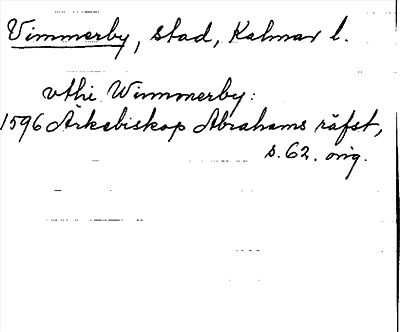 Vimmerby, stad, Kalmar l.
vthi Wimmerby:
1596 Ärkebiskop Abrahams räfst,
s. 62. orig.